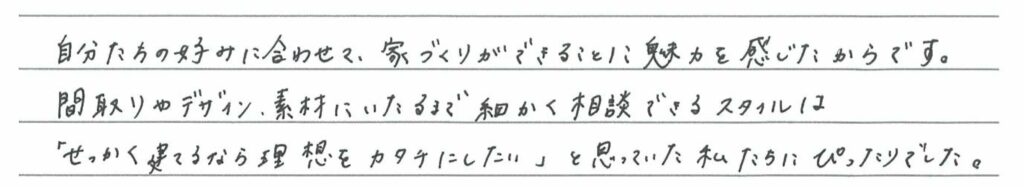 自分たちの好みに合わせて、家づくりができることに魅力を感じたからです。
間取りやデザイン、素材にいたるまで細かく相談できるスタイルは
「せっかく建てるなら理想をカタチにしたい」と思っていた私たちにぴったりでした。